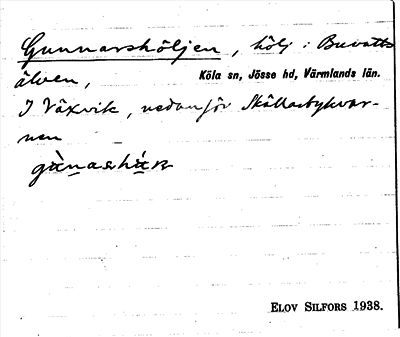 Gunnarshöljen, hölj i Buvatts
älven,
Köla sn, Jösse hd, Värmlands län.
I Växvik, nedanför Skållarbykvar-
nen
ELOV SILFORS 1938.